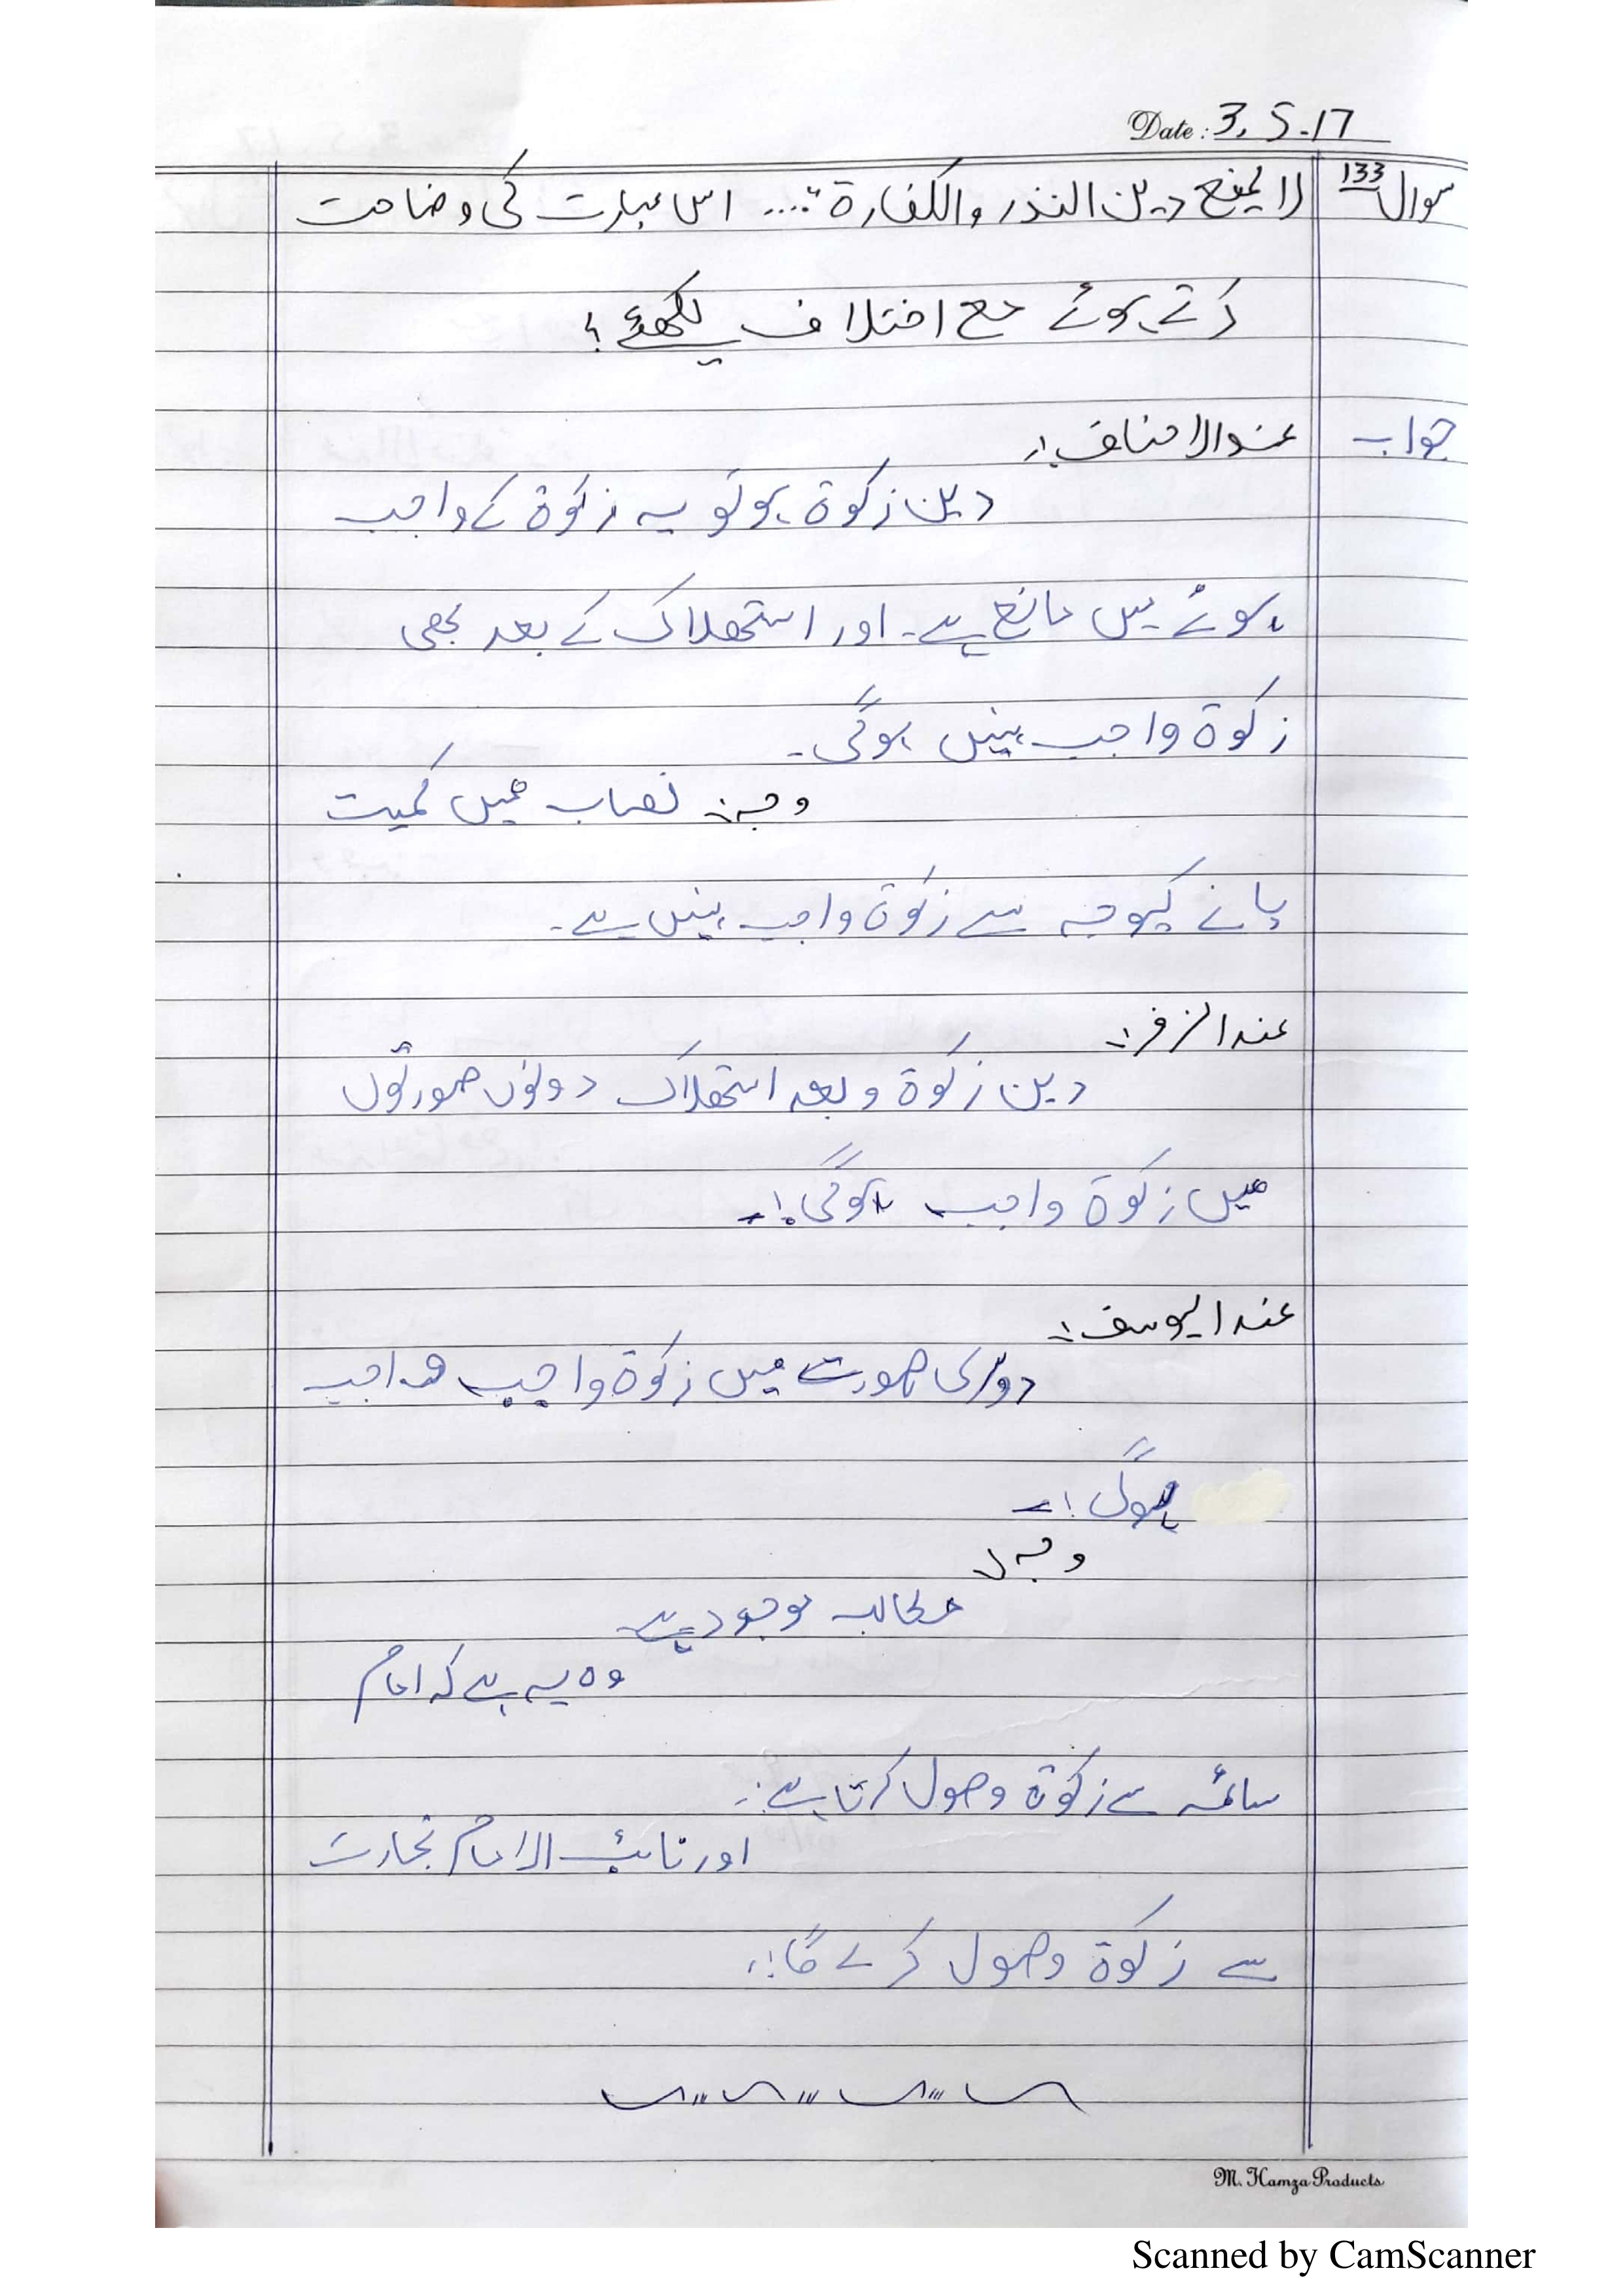 Date: 3.5-17
سوال 133 لا یمنع دین النذر والکفارة".... اس عبارت کی وضاحت
کرتے ہوئے مع اختلاف لکھئے؟
جواب عندالاحناف:
دین زکوة ہو تو یہ زکوة کے واجب
ہونے میں مانع ہے۔ اور استھلاک کے بعد بھی
زکوة واجب نہیں ہوگی۔
وجہ: نصاب میں کمیت
پانے کیوجہ سے زکوة واجب نہیں ہے۔
عندالزفر:
دین زکوة و بعد استھلاک دونوں صورتوں
میں زکوة واجب ہوگی!۔
عندالیوسف:
دوسری صورت میں زکوة واجب واجب
ہوگی!۔
وجہ
مطالبہ موجود ہے
وہ یہ ہے کہ امام
سائمہ سے زکوة وصول کرتا ہے:۔
اور نائب الامام تجارت
سے زکوة وصول کرے گا!
M. Hamza Products
Scanned by CamScanner